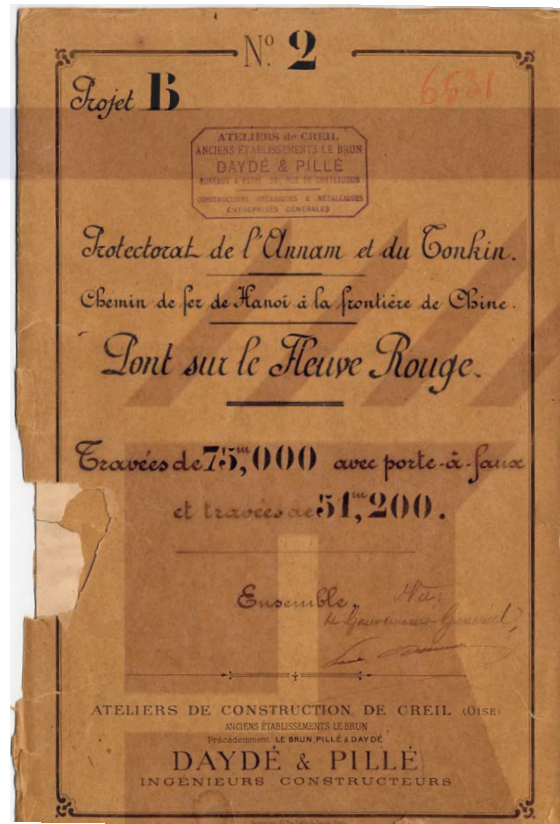 Nº 2
Projet B
6521
ATELIERS de CREIL
ANCIENS ETABLISSEMENTS LE BRUN
DAYDÉ & PILLÉ
BUREAUX À PARIS, 29, RUE DE CHATEAUDUN
CONSTRUCTIONS MÉCANIQUES & MÉTALLIQUES
ENTREPRISES GÉNÉRALES
Protectorat de l'Annam et du Tonkin.
Chemin de fer de Hanoï à la frontière de Chine.
Pont sur le Fleuve Rouge.
Travées de 75,ᵐ000 avec porte-à-faux
et travées de 51,ᵐ200.
Ensemble.
Le Gouverneur Général,
ATELIERS DE CONSTRUCTION DE CREIL (OISE)
ANCIENS ÉTABLISSEMENTS LE BRUN
Précédemment LE BRUN, PILLÉ & DAYDÉ
DAYDÉ & PILLÉ
INGÉNIEURS CONSTRUCTEURS